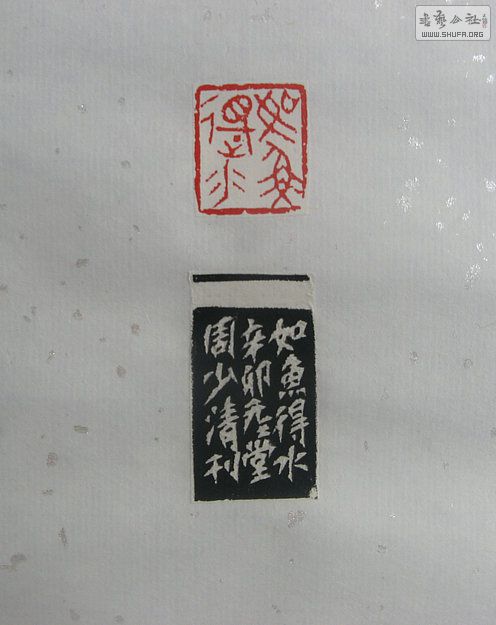 书艺公社
WWW.SHUFA.ORG
如魚
得水
如魚得水
辛卯秂堂
周少清利